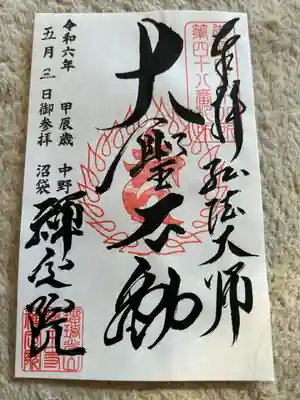 奉拝 弘法大師
大聖不動
令和六年 甲辰歳 中野
五月三日御参拝 沼袋
禅定院
第四十八番